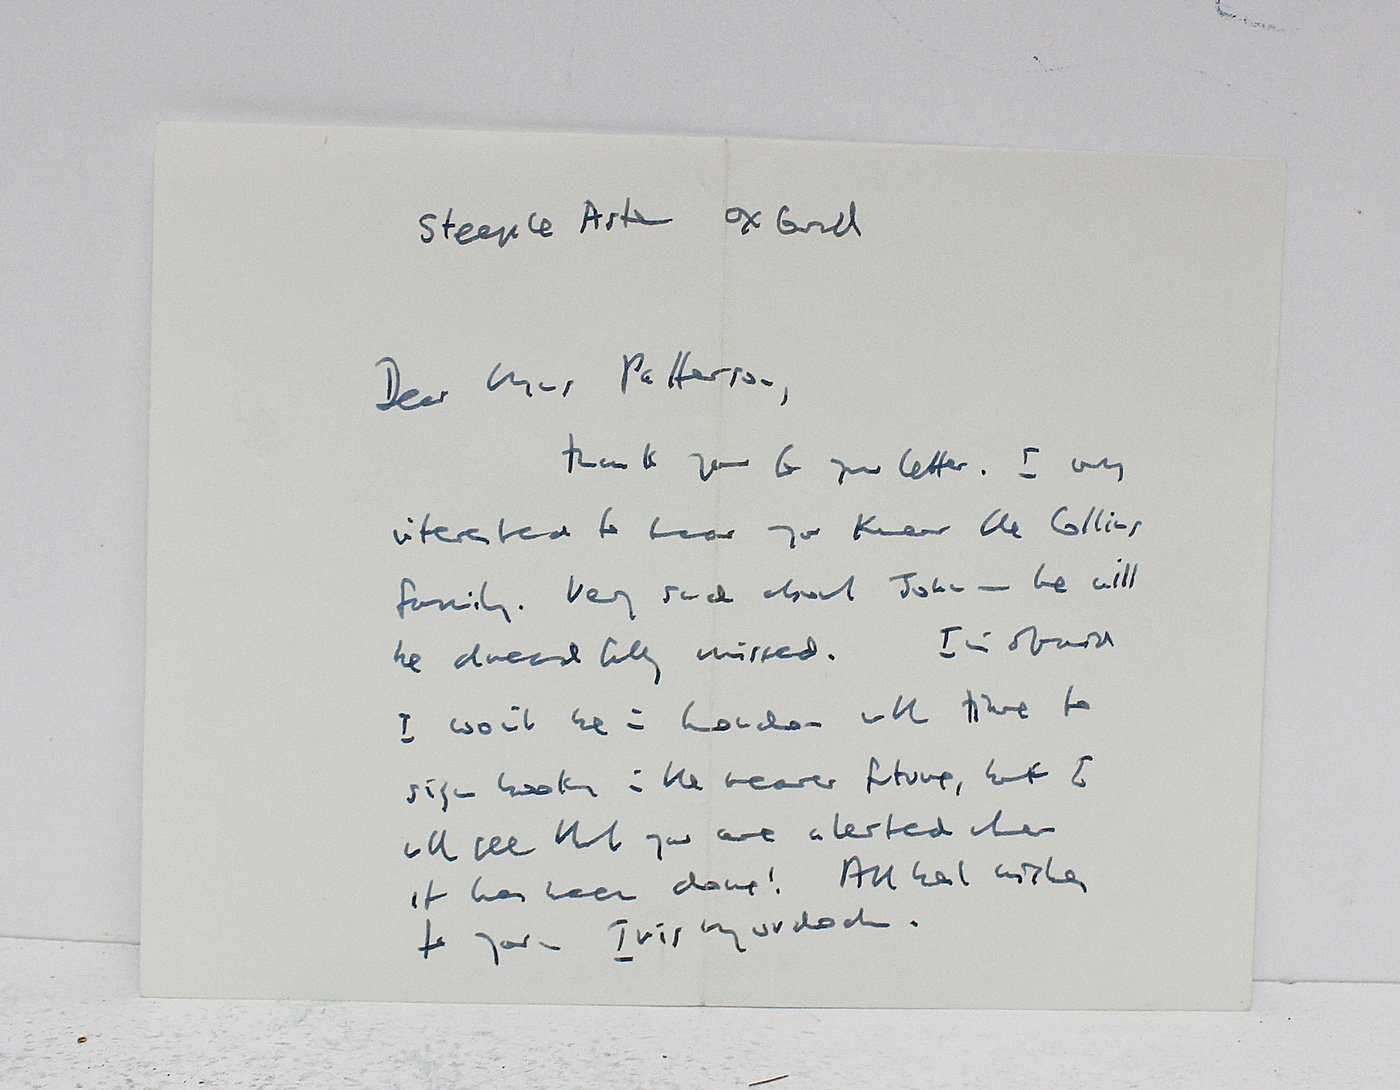 Steeple Aston Oxford
Dear Mrs Patterson,
thank you for your letter. I was
interested to hear you knew the Collins
family. Very sad about John — he will
be dreadfully missed. I'm afraid
I won't be in London with time to
sign books in the nearer future, but I
will see that you are alerted when
it has been done! All best wishes
to you Iris Murdoch.